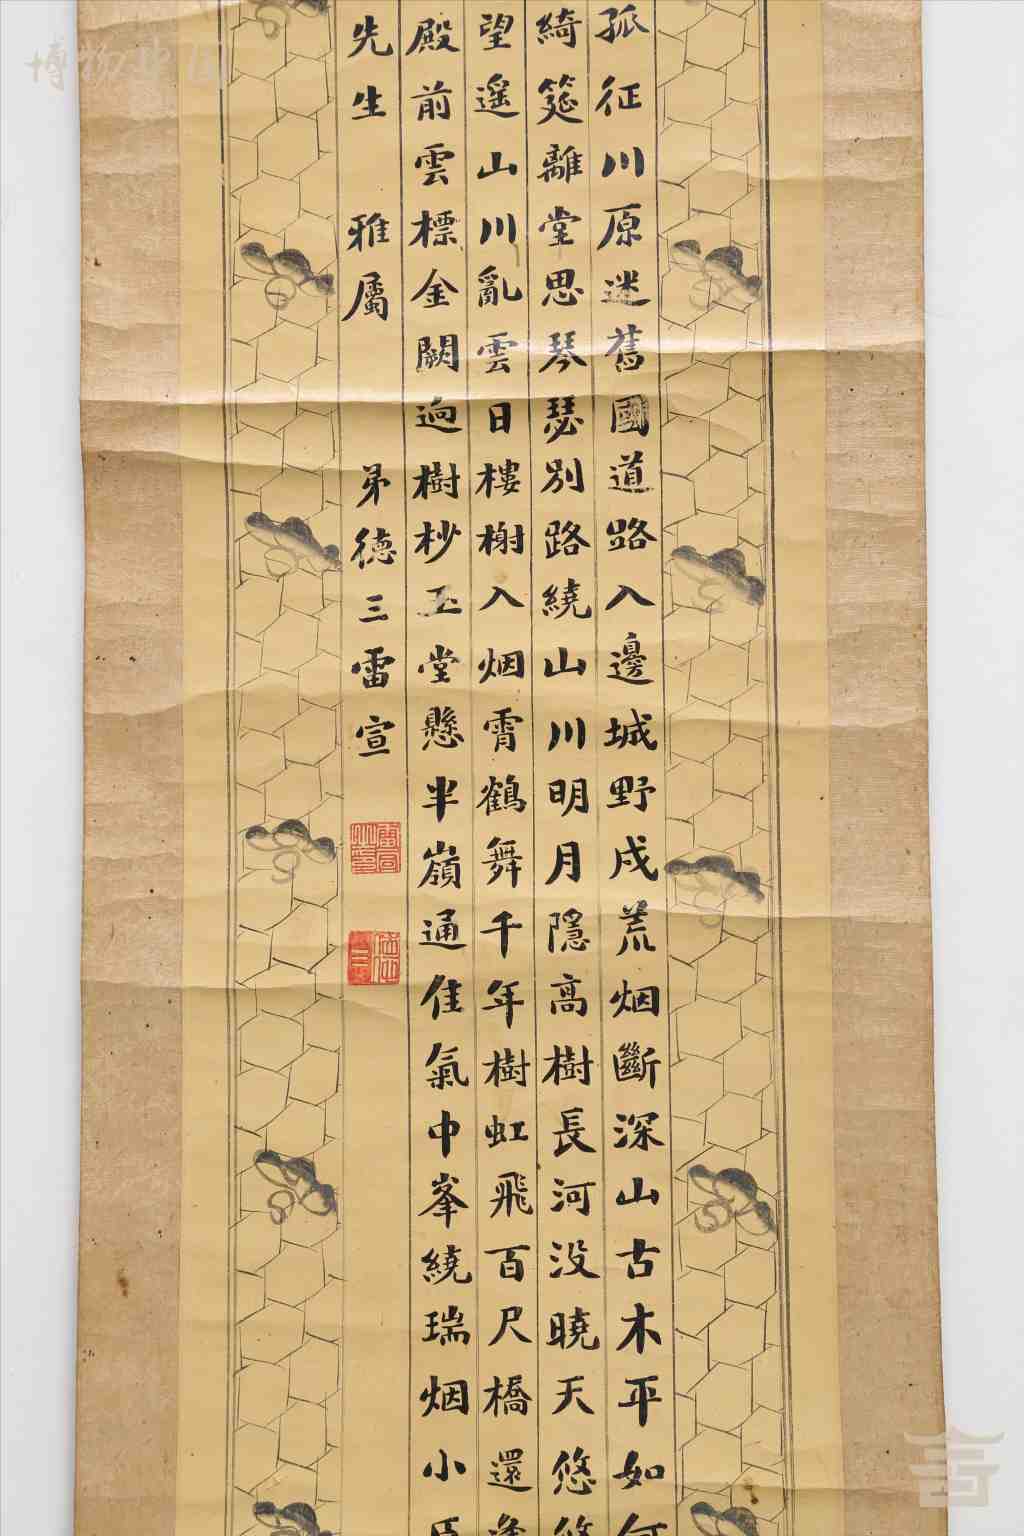 孤征川原迷舊國道路入邊城野戍荒烟斷深山古木平如何
綺筵離堂思琴瑟別路繞山川明月隱高樹長河没曉天悠悠
望遥山川亂雲日樓榭入烟霄鶴舞千年樹虹飛百尺橋還逢
殿前雲標金闕迥樹杪玉堂懸半嶺通佳氣中峯繞瑞烟小臣
先生 雅屬 弟德三雷宣
雷宣之印
德三
博物中国